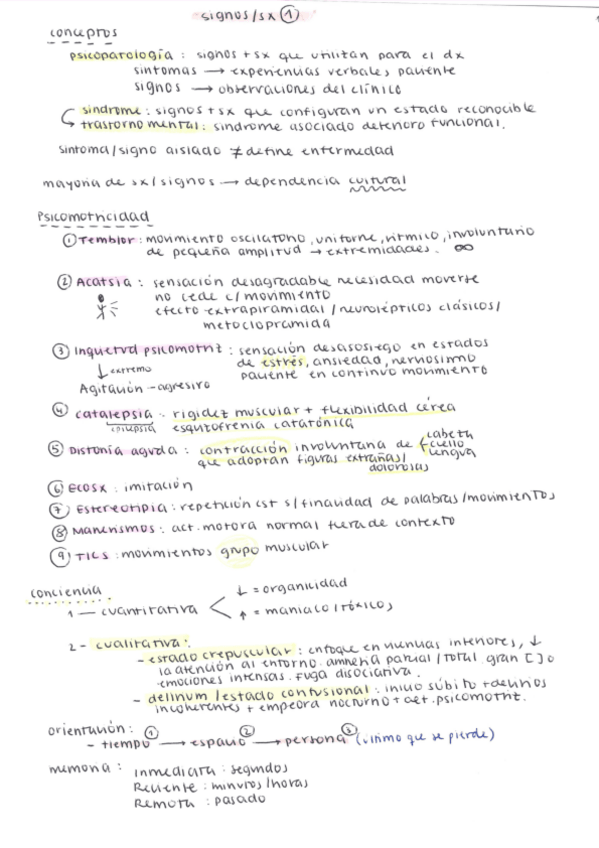 signos/sx ①
conceptos
psicopatología : signos + sx que utilizan para el dx
síntomas → experiencias verbales paciente
signos → observaciones del clínico
síndrome : signos + sx que configuran un estado reconocible
trastorno mental : síndrome asociado deterioro funcional.
síntoma/signo aislado ≠ define enfermedad
mayoría de sx/signos → dependencia cultural
Psicomotricidad
① Temblor : movimiento oscilatorio, uniforme, rítmico, involuntario
de pequeña amplitud → extremidades. ∞
② Acatsia : sensación desagradable necesidad moverse
no cede c/ movimiento
efecto extrapiramidal / neurolépticos clásicos /
metoclopramida
③ Inquietud psicomotriz : sensación desasosiego en estados
de estrés, ansiedad, nerviosismo
paciente en continuo movimiento
↓ extremo
Agitación – agresivo
④ catalepsia : rigidez muscular + flexibilidad cérea
epilepsia esquizofrenia catatónica
⑤ Distonía aguda : contracción involuntaria de { cabeza
cuello
lengua
que adoptan figuras extrañas/
dolorosas
⑥ Ecosx : imitación
⑦ Estereotipia : repetición cst s/finalidad de palabras/movimientos
⑧ Manerismos : act. motora normal fuera de contexto
⑨ TICS : movimientos grupo muscular
conciencia.
1 — cuantitativa < ↓ = organicidad
↑ = maniaco/tóxicos
2 - cualitativa :
- estado crepuscular : enfoque en vivencias interiores, ↓
la atención al entorno. amnesia parcial/total. gran [ ] o
emociones intensas. fuga disociativa.
- delirium/estado confusional : inicio súbito + delirios
incoherentes + empeora nocturno + act. psicomotriz.
orientación : ① ② ③
- tiempo → espacio → persona (último que se pierde)
memoria : inmediata : segundos
Reciente : minutos/horas
Remota : pasado